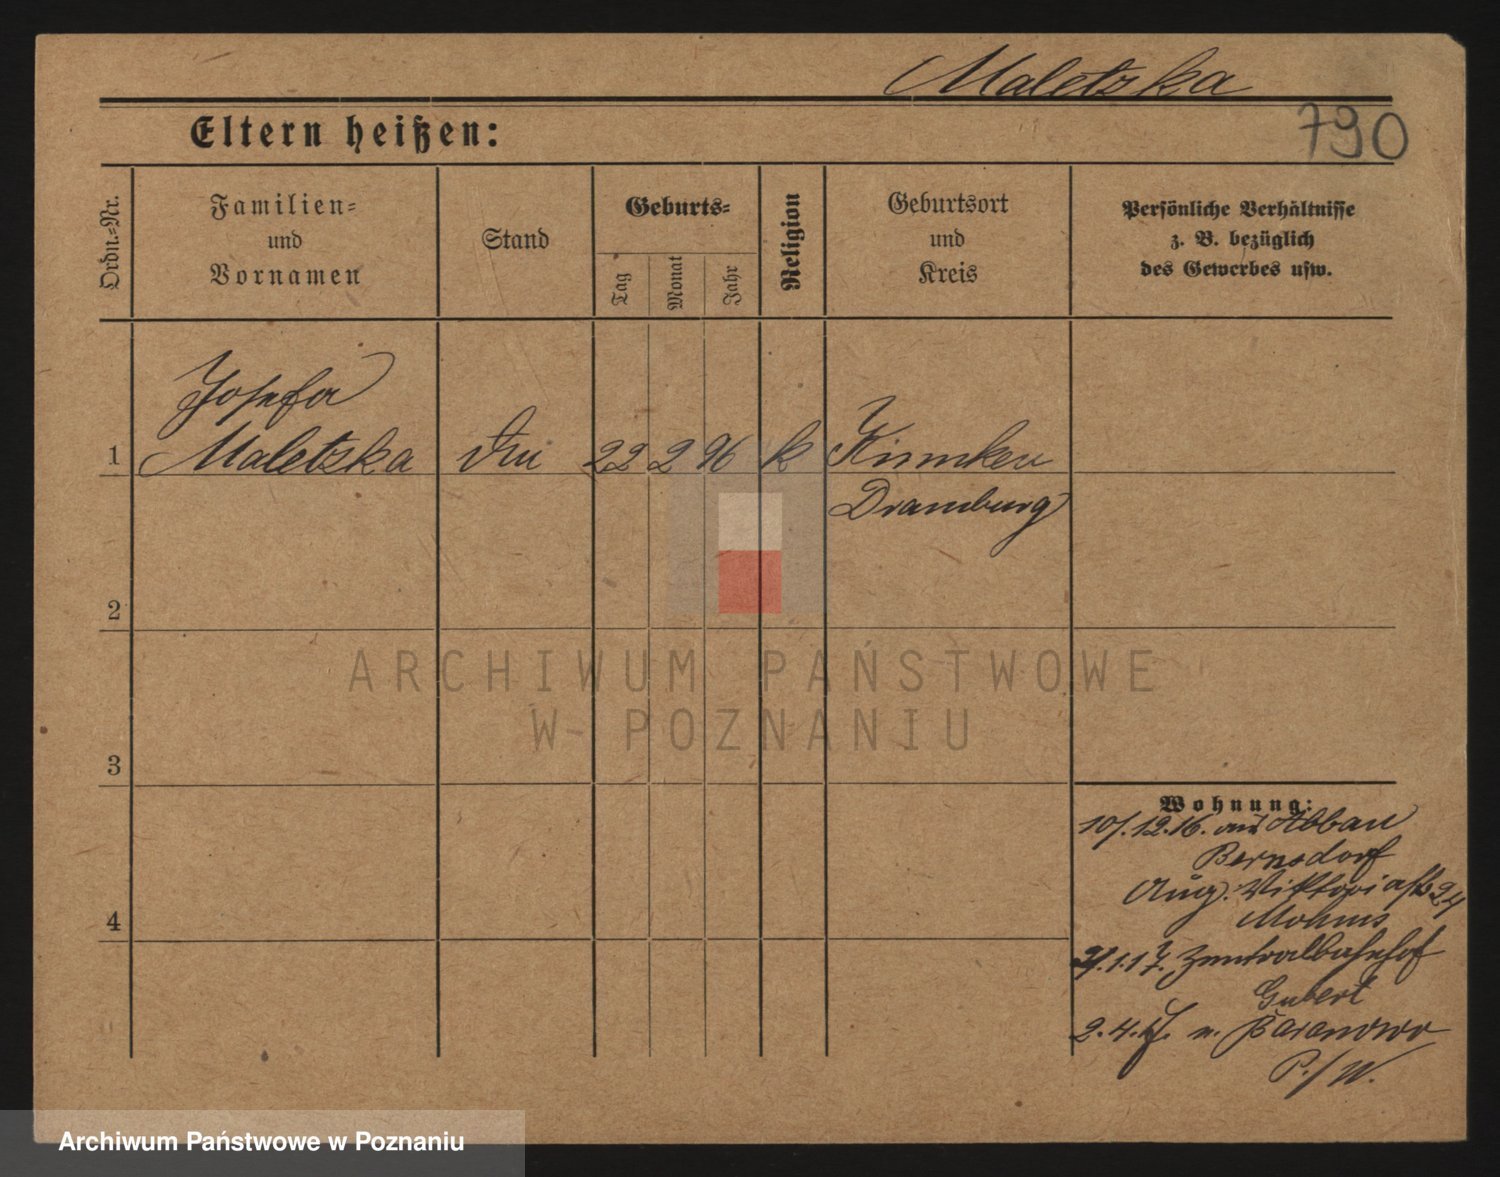 Maletzka
790
Eltern heißen:
Ordn.-Nr.
Familien-
und
Vornamen
Stand
Geburts-
Tag
Monat
Jahr
Religion
Geburtsort
und
Kreis
Persönliche Verhältnisse
z. B. bezüglich
des Gewerbes usw.
Josefa
1 Maletzka 22 2 96 k
Dramburg
2
ARCHIWUM PAŃSTWOWE
W POZNANIU
3
Wohnung:
10/.12.16. aus Abbau
Bernsdorf
Aug. Viktoriastr 24
4
Mohms
2/.1.17. Zentralbahnhof
Gubert
2.4.17. n. Baranowo
P./W.
Archiwum Państwowe w Poznaniu